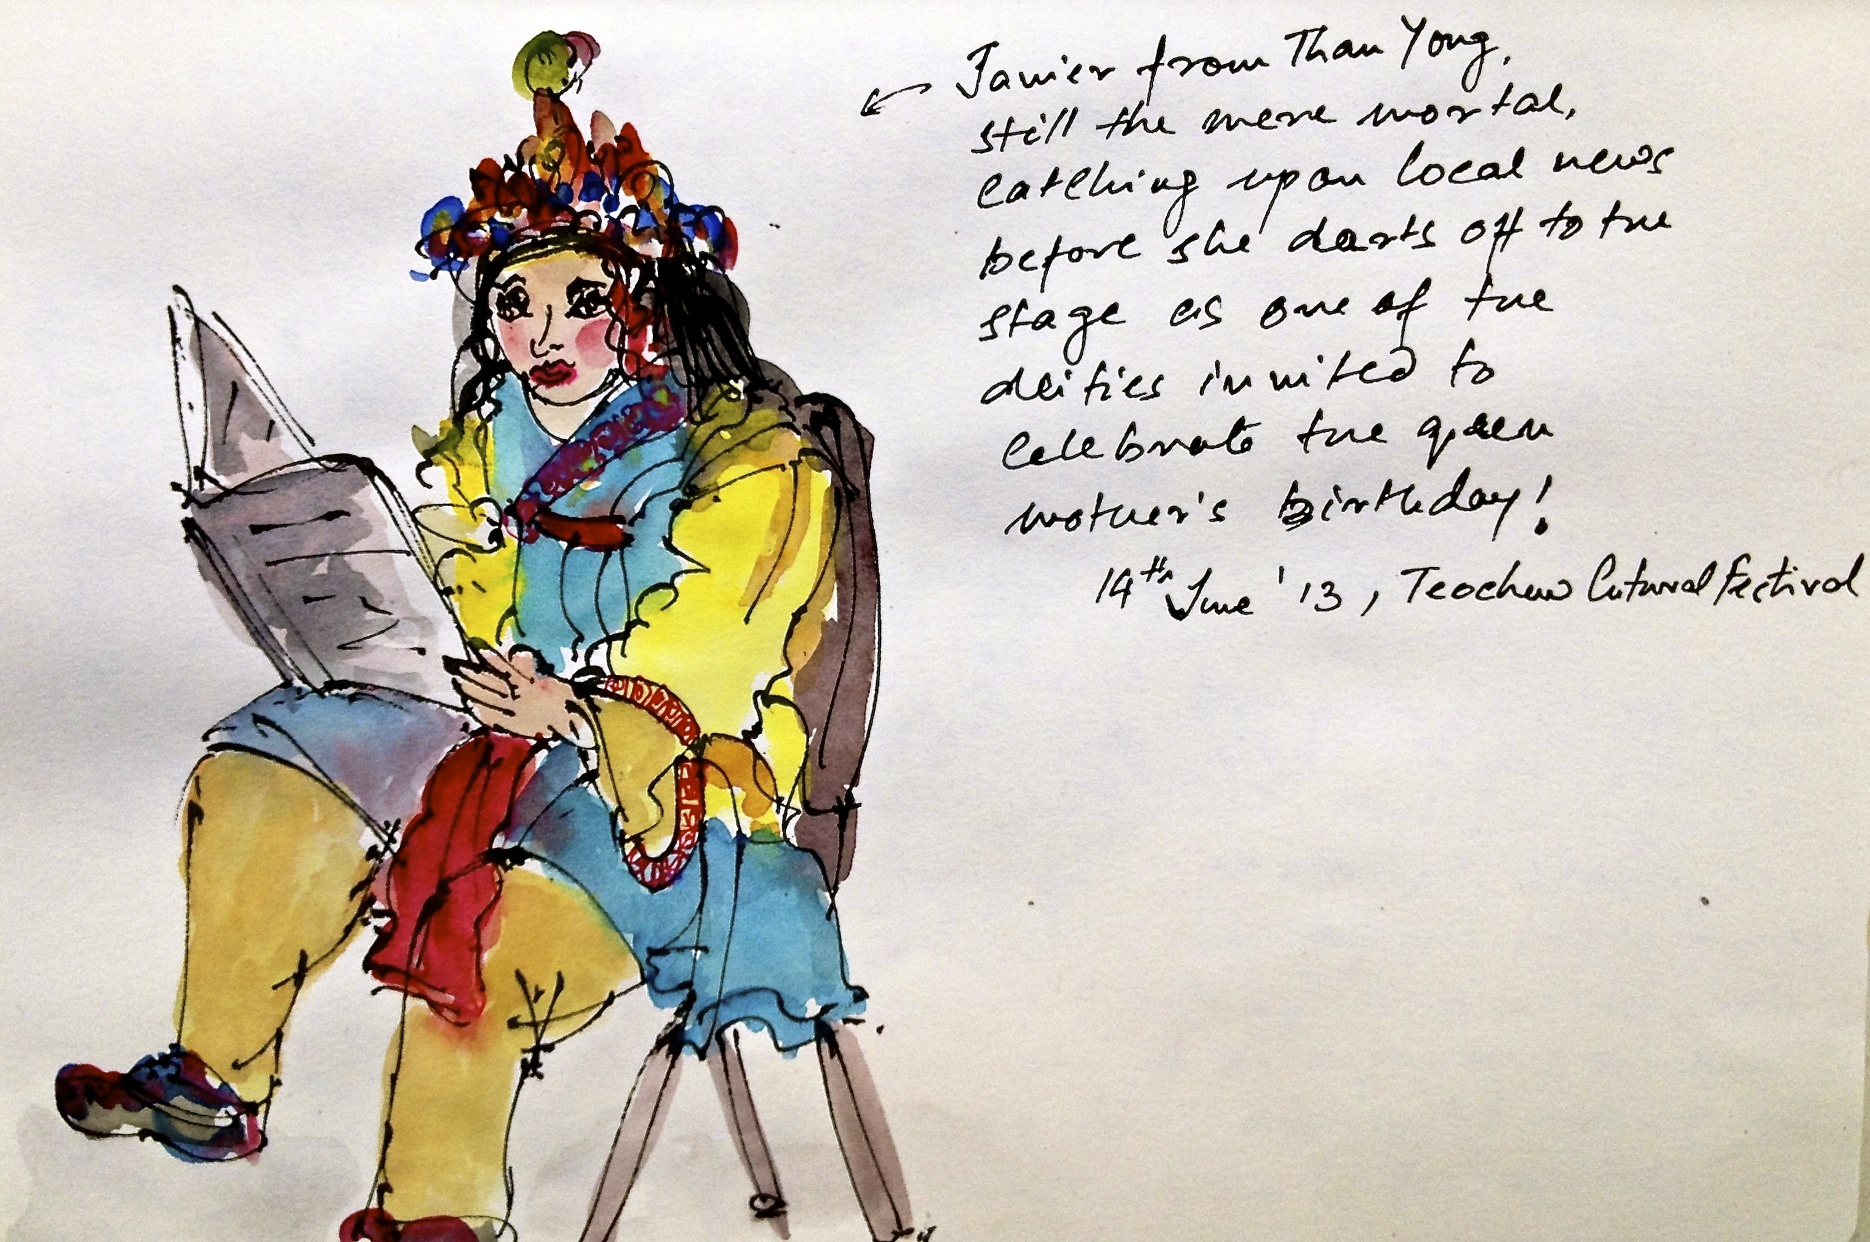 Javier from Than Yong,
still the mere mortal,
catching upon local news
before she darts off to the
stage as one of the
deities invited to
celebrate the queen
mother's birthday!
14th June '13, Teochew Cutural Festival